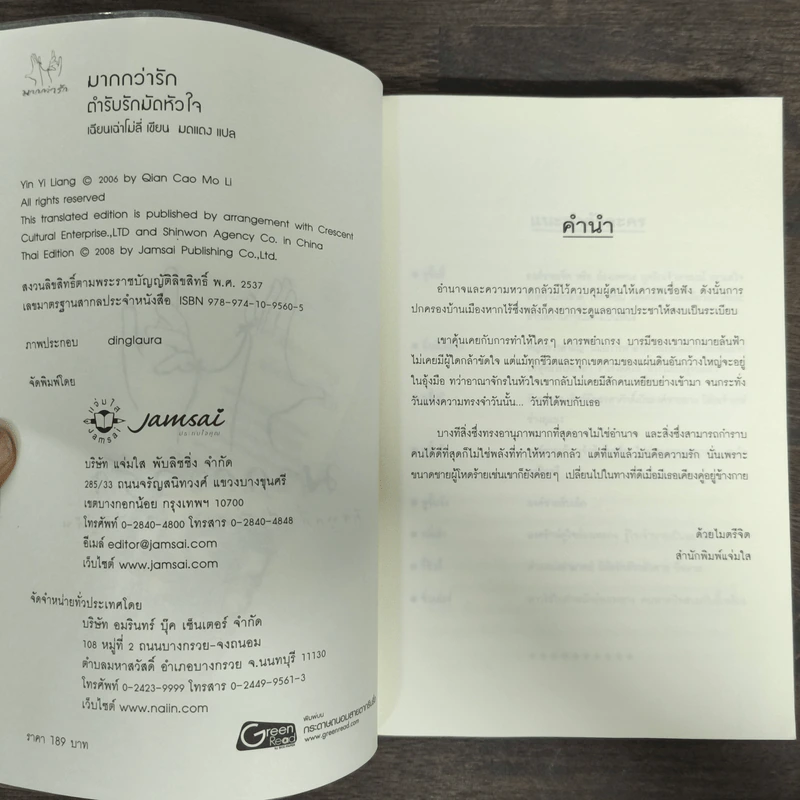 มากกว่ารัก
มากกว่ารัก
ตำรับรักมัดหัวใจ
เฉียนเฉ่าโม่ลี่ เขียน มดแดง แปล
Yin Yi Liang © 2006 by Qian Cao Mo Li
All rights reserved
This translated edition is published by arrangement with Crescent
Cultural Enterprise.,LTD and Shinwon Agency Co. in China
Thai Edition © 2008 by Jamsai Publishing Co.,Ltd.
สงวนลิขสิทธิ์ตามพระราชบัญญัติลิขสิทธิ์ พ.ศ. 2537
เลขมาตรฐานสากลประจำหนังสือ ISBN 978-974-10-9560-5
ภาพประกอบ dinglaura
จัดพิมพ์โดย
แจ่มใส
Jamsai
Jamsai
บริษัท แจ่มใส พับลิชชิ่ง จำกัด
285/33 ถนนจรัญสนิทวงศ์ แขวงบางขุนศรี
เขตบางกอกน้อย กรุงเทพฯ 10700
โทรศัพท์ 0-2840-4800 โทรสาร 0-2840-4848
อีเมล์ editor@jamsai.com
เว็บไซต์ www.jamsai.com
จัดจำหน่ายทั่วประเทศโดย
บริษัท อมรินทร์ บุ๊ค เซ็นเตอร์ จำกัด
108 หมู่ที่ 2 ถนนบางกรวย-จงถนอม
ตำบลมหาสวัสดิ์ อำเภอบางกรวย จ.นนทบุรี 11130
โทรศัพท์ 0-2423-9999 โทรสาร 0-2449-9561-3
เว็บไซต์ www.naiin.com
Green
Read
พิมพ์บน
กระดาษถนอมสายตากรีนรี้ด
www.greenread.com
ราคา 189 บาท
คำนำ
อำนาจและความหวาดกลัวมีไว้ควบคุมผู้คนให้เคารพเชื่อฟัง ดังนั้นการ
ปกครองบ้านเมืองหากไร้ซึ่งพลังก็คงยากจะดูแลอาณาประชาให้สงบเป็นระเบียบ
เขาคุ้นเคยกับการทำให้ใครๆ เคารพยำเกรง บารมีของเขามากมายล้นฟ้า
ไม่เคยมีผู้ใดกล้าขัดใจ แต่แม้ทุกชีวิตและทุกเขตคามของแผ่นดินอันกว้างใหญ่จะอยู่
ในอุ้งมือ ทว่าอาณาจักรในหัวใจเขากลับไม่เคยมีสักคนเหยียบย่างเข้ามา จนกระทั่ง
วันแห่งความทรงจำวันนั้น... วันที่ได้พบกับเธอ
บางทีสิ่งซึ่งทรงอานุภาพมากที่สุดอาจไม่ใช่อำนาจ และสิ่งซึ่งสามารถกำราบ
คนได้ดีที่สุดก็ไม่ใช่พลังที่ทำให้หวาดกลัว แต่ที่แท้แล้วมันคือความรัก นั่นเพราะ
ขนาดชายผู้โหดร้ายเช่นเขาก็ยังค่อยๆ เปลี่ยนไปในทางที่ดีเมื่อมีเธอเคียงคู่อยู่ข้างกาย
ด้วยไมตรีจิต
สำนักพิมพ์แจ่มใส